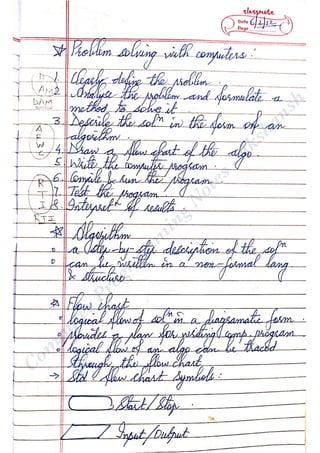 classmate
Date 6/2/12
Page
☆ Problem solving with computers :
1. Clearly define the problem.
2. Analyse the problem and formulate a
method to solve it
3. Describe the solⁿ in the form of an
algorithm.
4. Draw a flow chart of the algo.
5. Write the computer program.
6. Compile & run the program
7. Test the program.
8. Interpretⁿ of results
D
AM
DAM
A
F
W
C
R
T
I
RTI
☆ Algorithm
o a (step-by-step description of the solⁿ
o can be written in a non-formal lang
& structure
☆ Flow chart
o logical flow of solⁿ in a diagramatic form.
o provides a plan for writing comp. program
o logical flow of an algo can be traced
through the flow chart
→ Std flow chart symbols:
Start / Stop
Input / Output